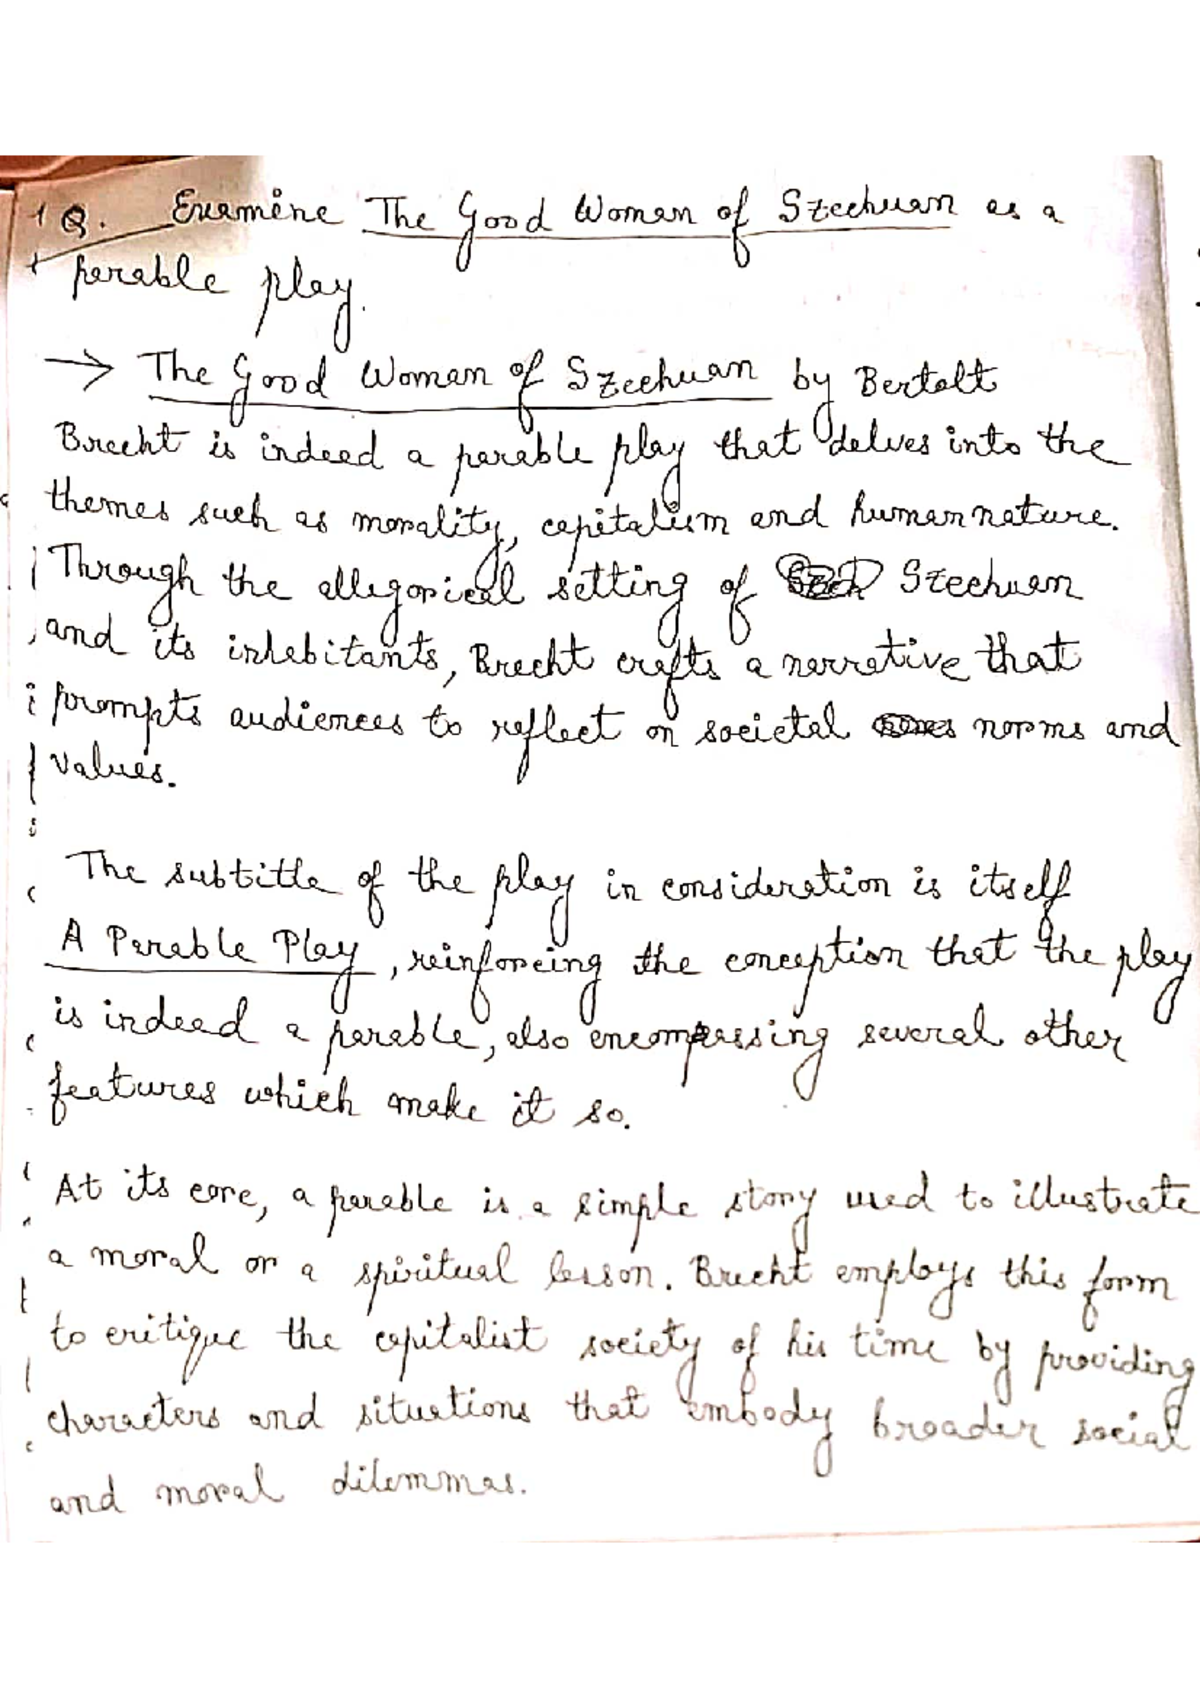 Q. Examine The Good Woman of Szechuan as a
parable play.
→ The Good Woman of Szechuan by Bertolt
Brecht is indeed a parable play that delves into the
themes such as morality, capitalism and human nature.
Through the allegorical setting of Szechuan
and its inhabitants, Brecht crafts a narrative that
prompts audiences to reflect on societal norms and
values.
The subtitle of the play in consideration is itself
A Parable Play, reinforcing the conception that the play
is indeed a parable, also encompassing several other
features which make it so.
At its core, a parable is a simple story used to illustrate
a moral or a spiritual lesson. Brecht employs this form
to critique the capitalist society of his time by providing
characters and situations that embody broader social
and moral dilemmas.